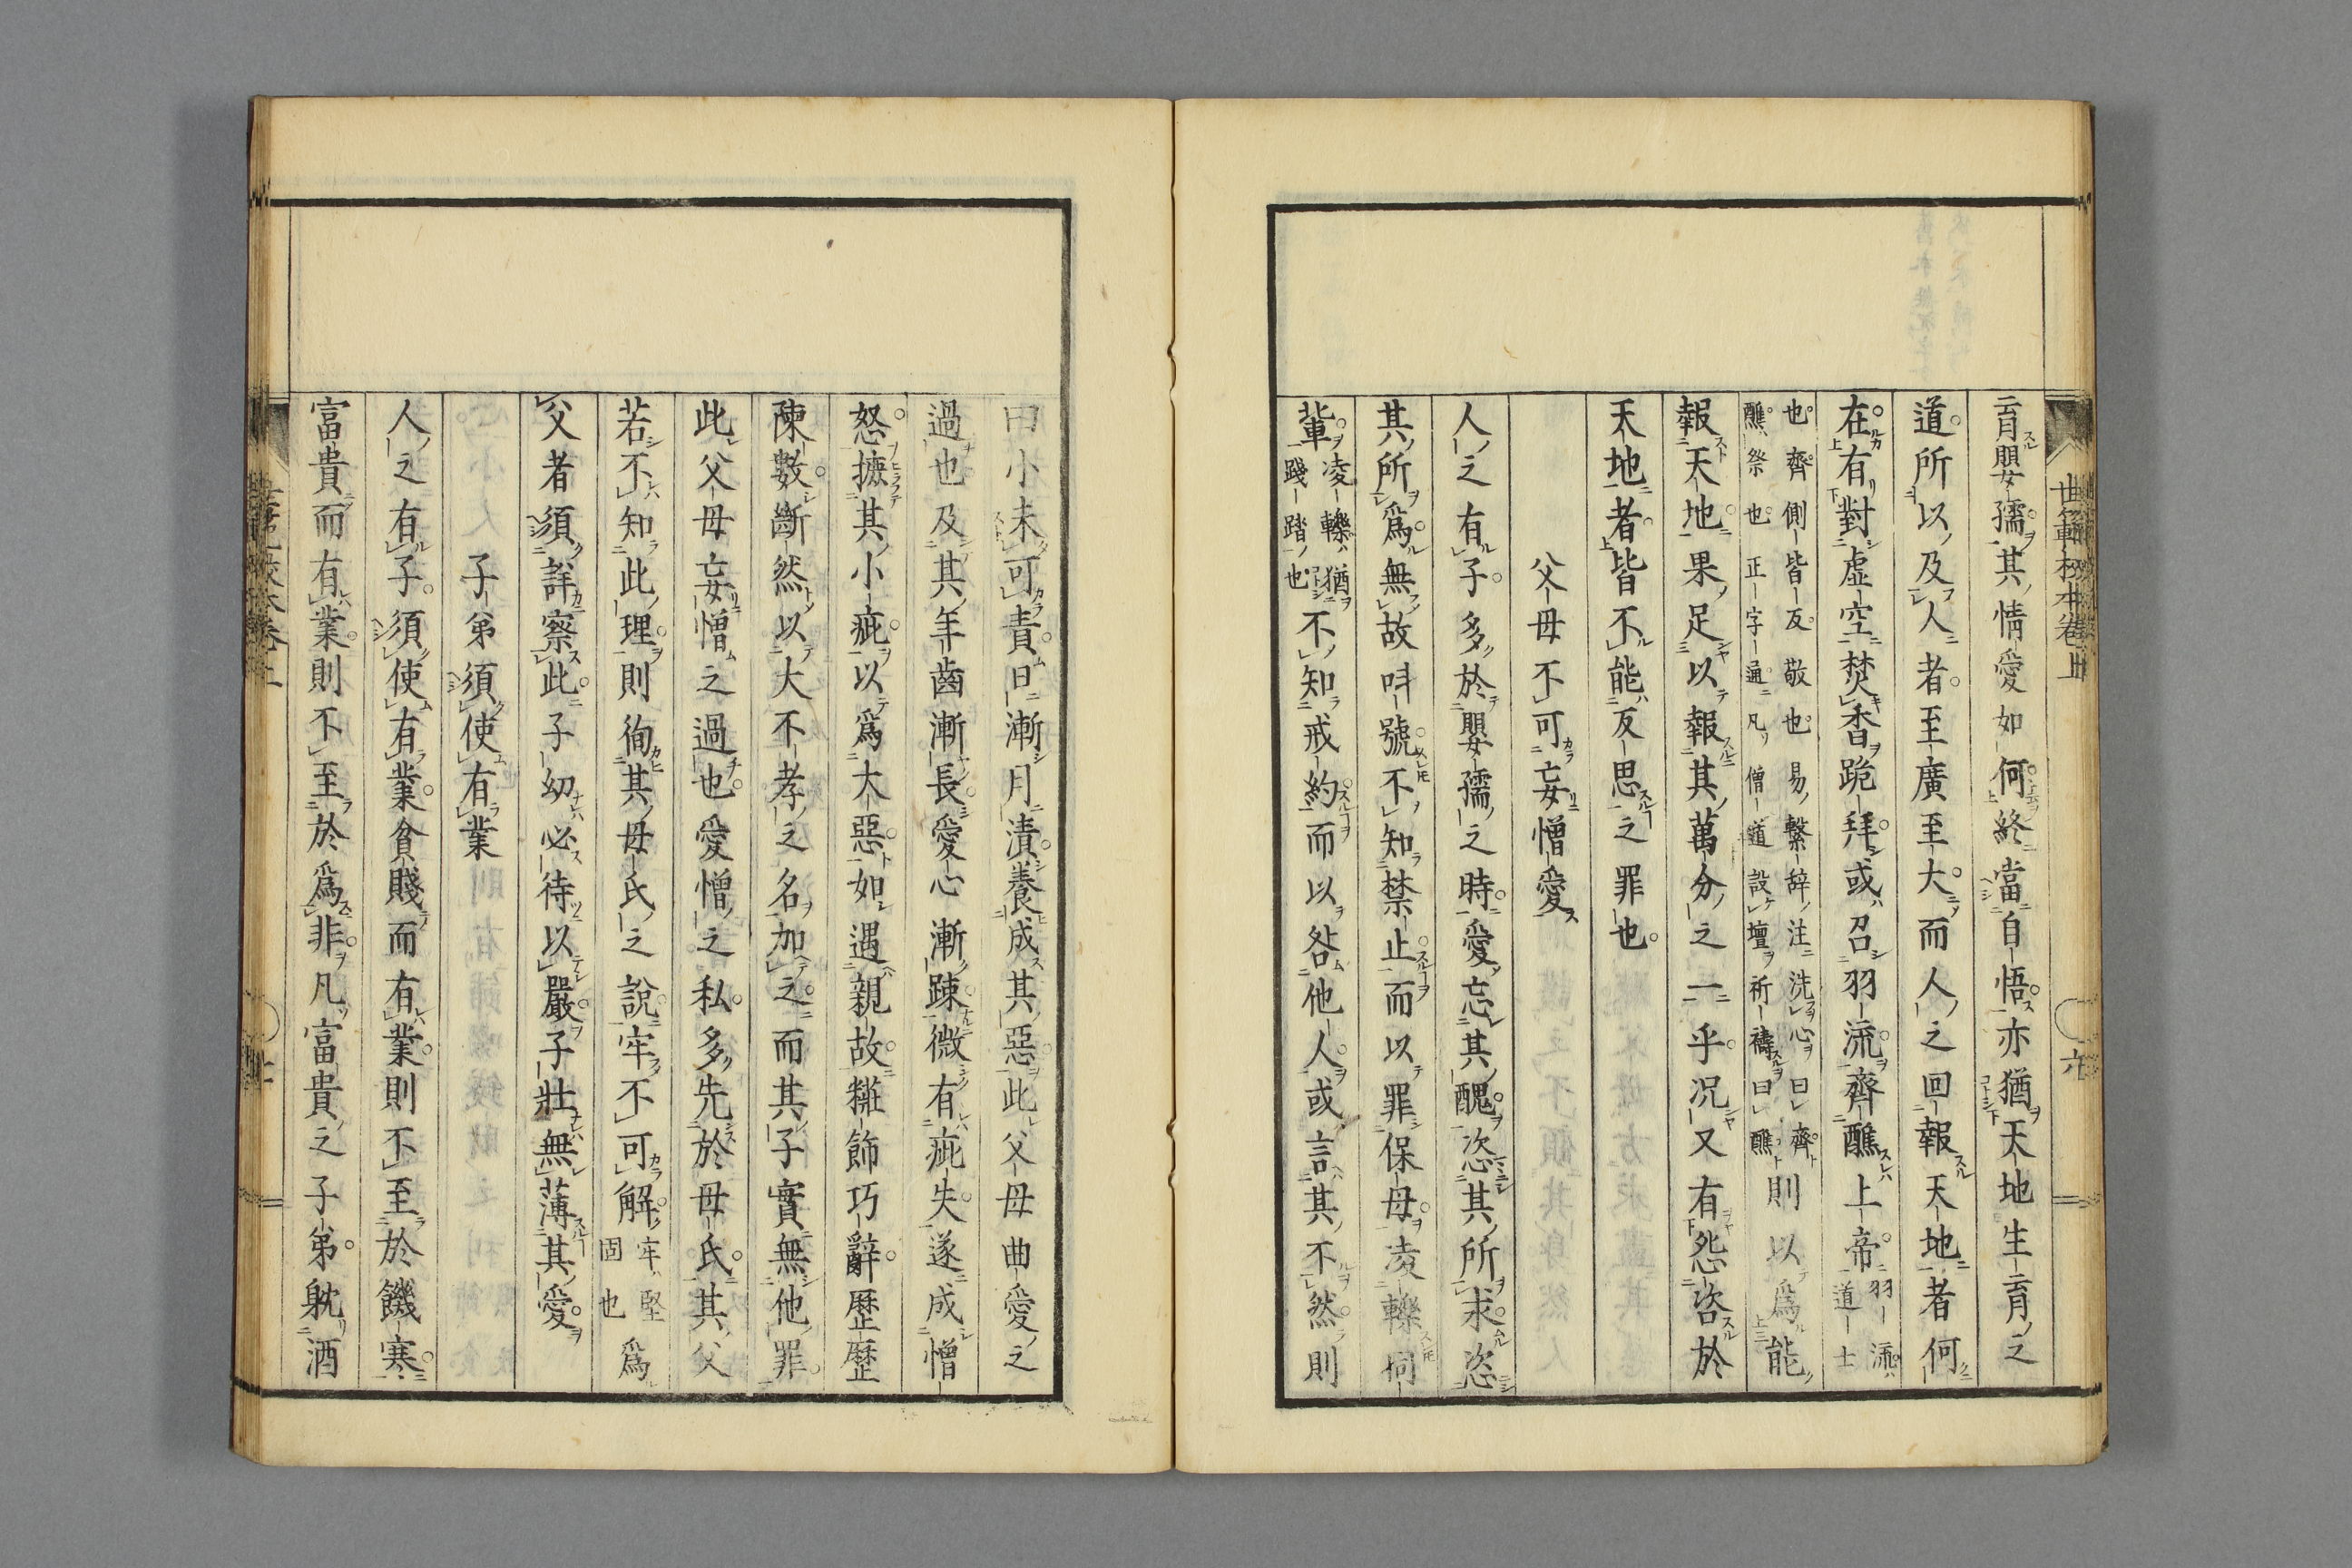 世範校本卷上
六
育嬰孺其情愛如何終當自悟亦猶天地生育之
道所以及人者至廣至大而人之回報天地者何
在有對虛空焚香跪拜或召羽流齊醮上帝羽流道士
也齊側皆反敬也易繫辞注洗心曰齊
醮祭也正字通凡僧道設壇祈禱曰醮則以爲能
報天地果足以報其萬分之一乎況又有怨咨於
天地者皆不能反思之罪也
父母不可妄憎愛
人之有子多於嬰孺之時愛忘其醜恣其所求恣
其所爲無故叫號不知禁止而以罪保母凌轢同
輩凌轢猶踐踏也不知戒約而以咎他人或言其不然則
曰小未可責日漸月漬養成其惡此父母曲愛之
過也及其年齒漸長愛心漸疎微有疵失遂成憎
怒摭其小疵以爲大惡如遇親故糚飾巧辭歷歷
陳數斷然以大不孝之名加之而其子實無他罪
此父母妄憎之過也愛憎之私多先於母氏其父
若不知此理則徇其母氏之說牢不可解牢堅固也爲
父者須詳察此子幼必待以嚴子壯無薄其愛
子弟須使有業
人之有子須使有業貧賤而有業則不至於饑寒
富貴而有業則不至於爲非凡富貴之子弟躭酒